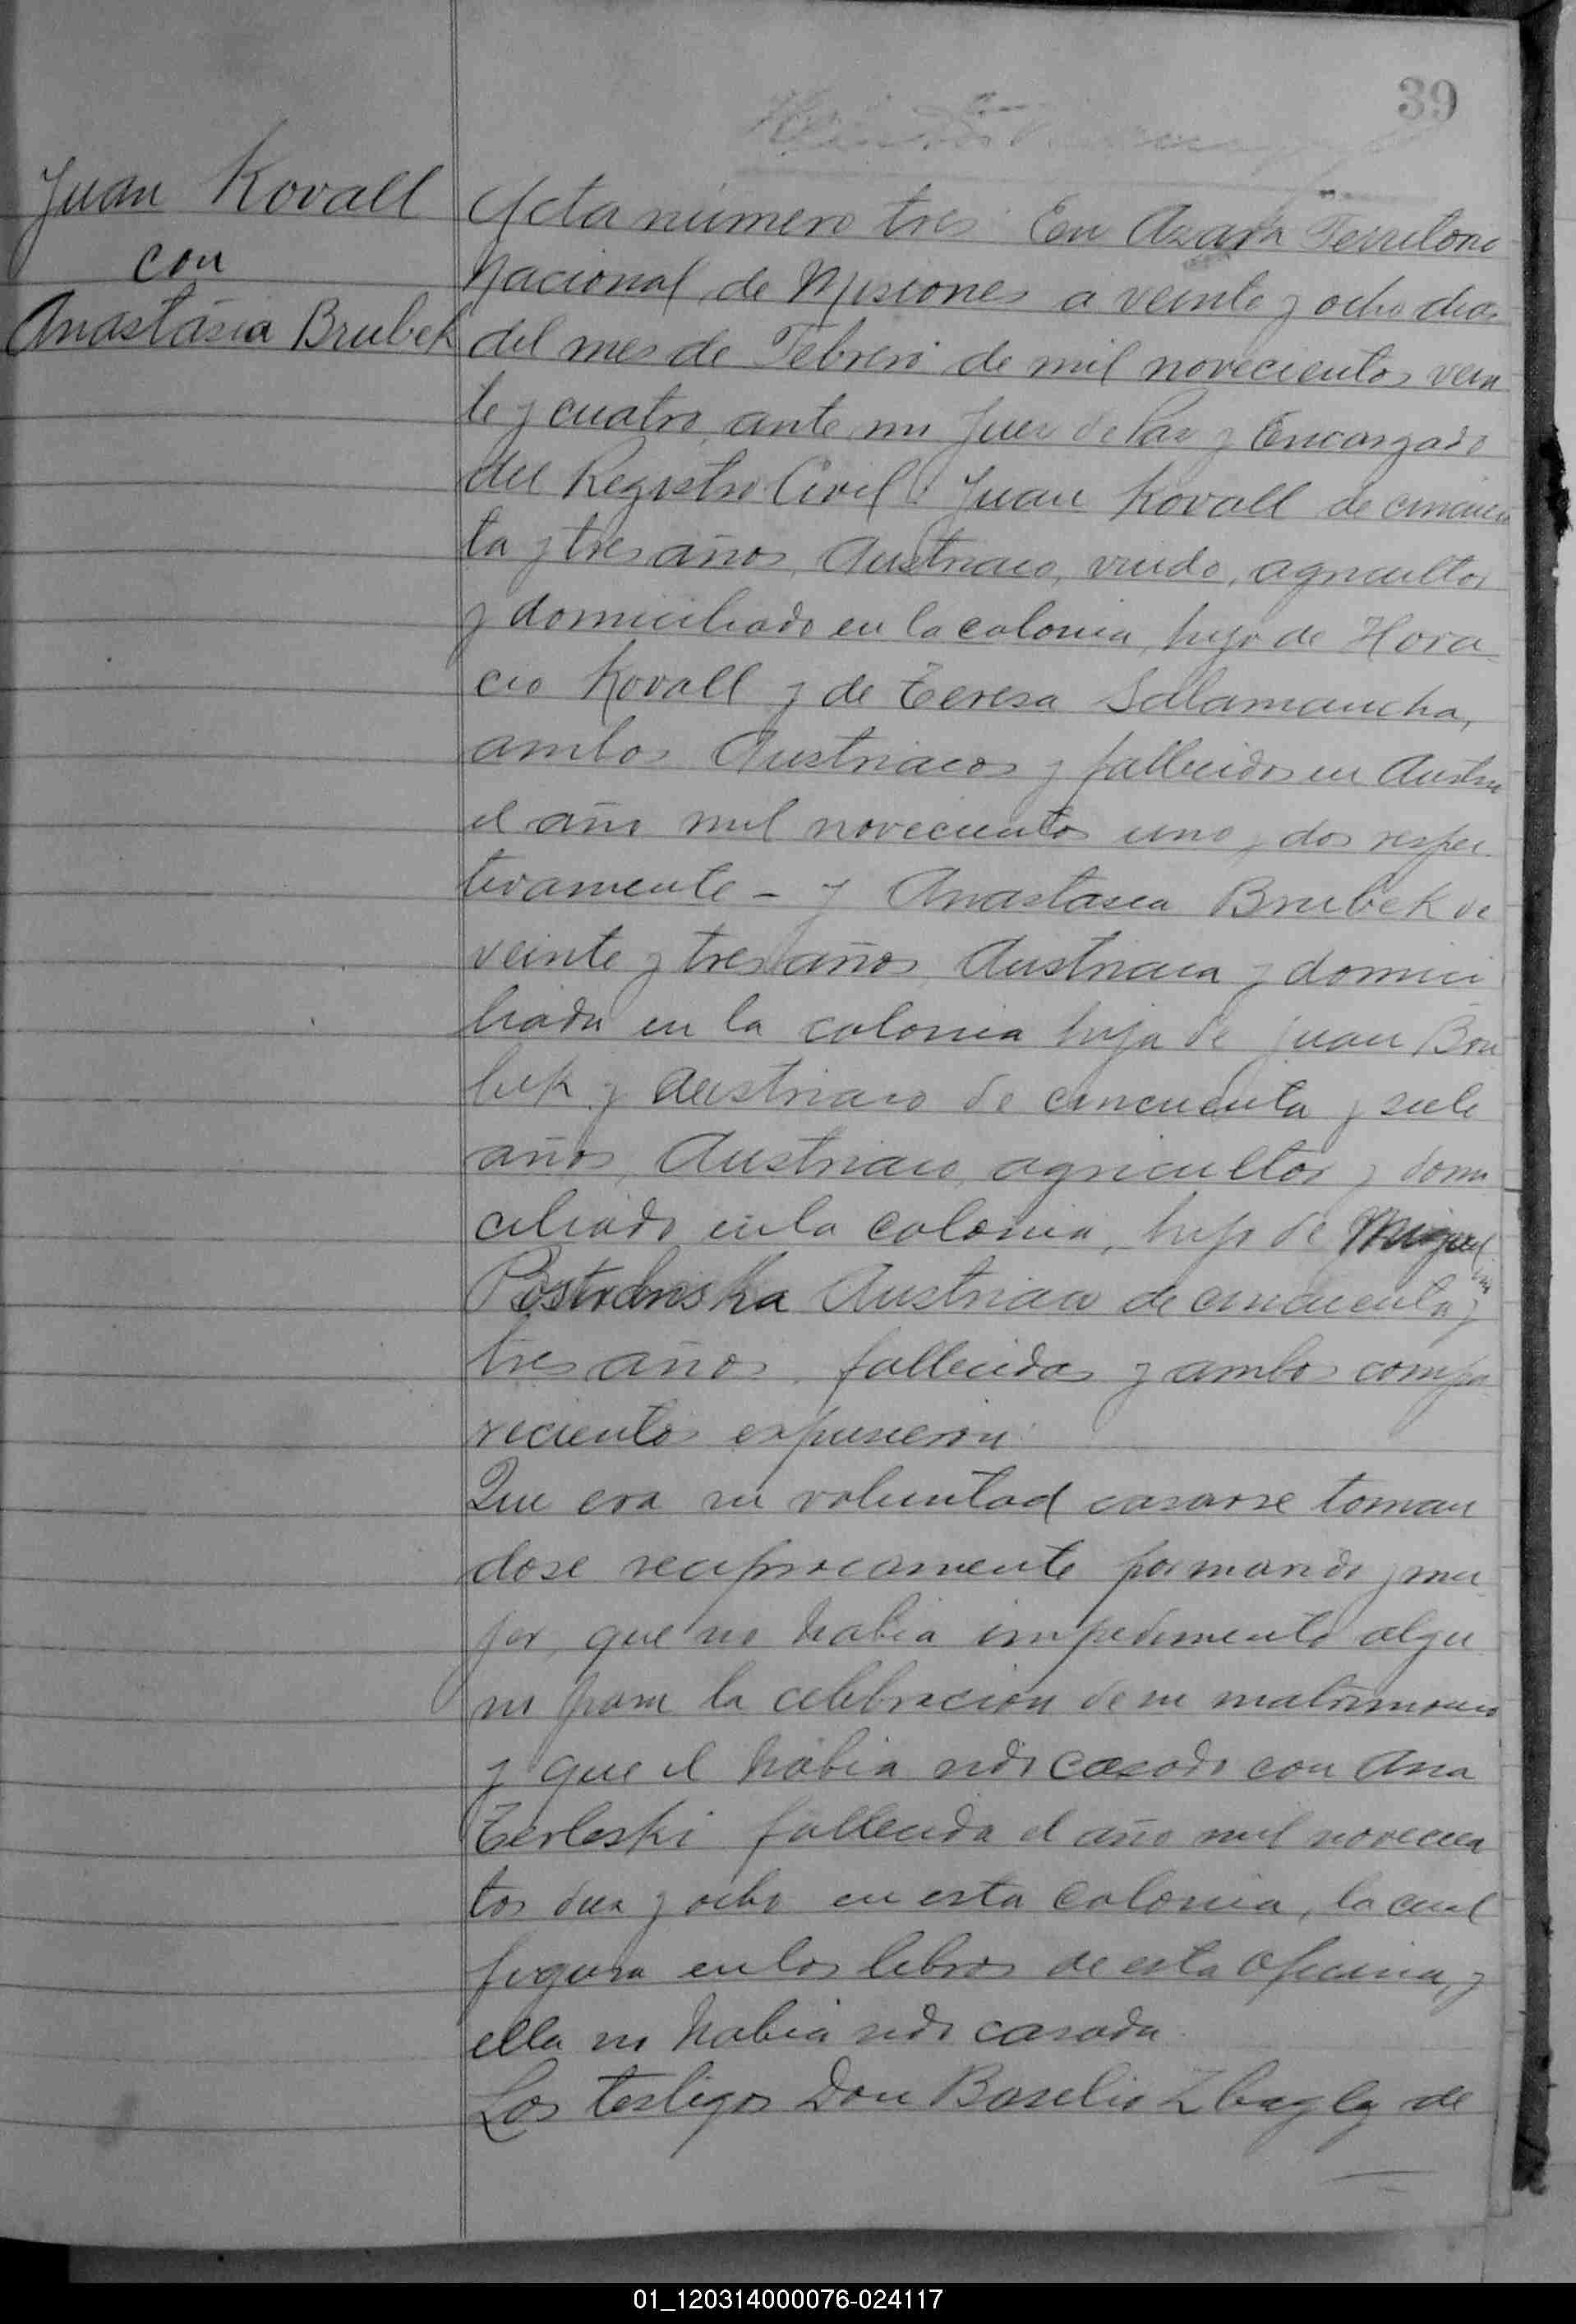 39
Juan Kovall
con
Anastásia Brubek
Acta número tres. En Azara Territorio
Nacional de Misiones a veinte y ocho dias
del mes de Febrero de mil novecientos vein
te y cuatro, ante mi Juez de Paz y Encargado
del Registro Civil: Juan Kovall de cincuen
ta y tres años, Austriaco, viudo, agricultor
y domiciliado en la colonia, hijo de Hora
cio Kovall y de Teresa Salamancha,
ambos Austriacos y fallecidos en Austria
el año mil novecientos uno y dos respec
tivamente - y Anastasia Brubek de
veinte y tres años, Austriaca y domici
liada en la colonia hija de Juan Bru
bek y Austriaco de cincuenta y siete
años, Austriaco, agricultor y domi
ciliado en la colonia, hijo de Miguel
Austriaco de cincuenta y
tres años, fallecidos y ambos compa
recientes expusieron:
Que era su voluntad casarse toman
dose reciprocamente por marido y mu
jer, que no habia impedimento algu
no para la celebracion de su matrimonio
y que el habia sido casado con Ana
Terleski fallecida el año mil novecien
tos diez y ocho en esta Colonia, la cual
figura en los libros de esta oficina, y
ella no habia sido casada.
Los testigos Don Baselio de
01_120314000076-024117